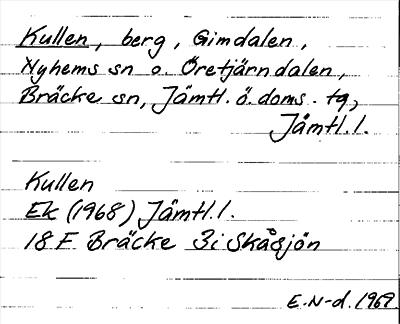 Kullen, berg, Gimdalen,
Nyhems sn o. Öretjärndalen,
Bräcke sn, Jämtl. ö. doms. tg,
Jämtl. l.
Kullen
Ek (1968) Jämtl. l.
18 F Bräcke 3i Skågjön
E.N-d. 1969